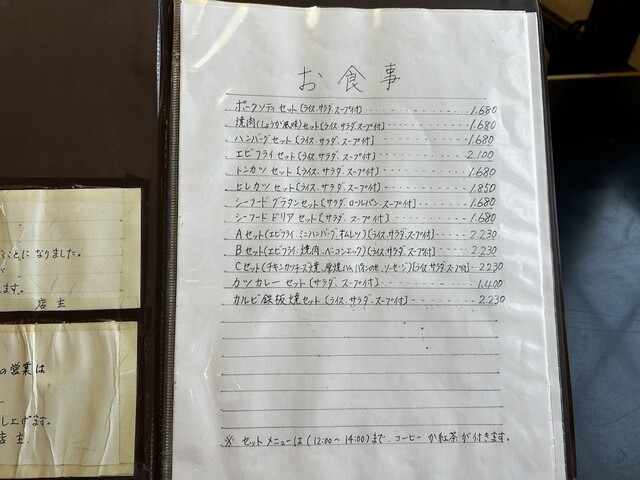 お食事
ポークソティセット(ライス、サラダ、スープ付) 1.680
焼肉(しょうが風味)セット(ライス、サラダ、スープ付) 1.680
ハンバーグセット(ライス、サラダ、スープ付) 1.680
エビフライセット(ライス、サラダ、スープ付) 2.100
トンカツセット(ライス、サラダ、スープ付) 1.680
ヒレカツセット(ライス、サラダ、スープ付) 1.850
シーフードグラタンセット(サラダ、ロールパン、スープ付) 1.680
シーフードドリアセット(サラダ、スープ付) 1.680
Aセット(エビフライ、ミニハンバーグ、オムレツ)(ライス、サラダ、スープ付) 2.230
Bセット(エビフライ、焼肉、ベーコンエッグ)(ライス、サラダ、スープ付) 2.230
Cセット(チキンカツチーズ焼、厚焼ハムパインのせ、ソーセージ)(ライス、サラダ、スープ付) 2.230
カツカレーセット(サラダ、スープ付) 1.400
カルビ鉄板焼セット(ライス、サラダ、スープ付) 2.230
※セットメニューは(12:00〜14:00)まで、コーヒーか紅茶が付きます。
ことになりました。
が
ます。
店主
の営業は
し上げます。
店主